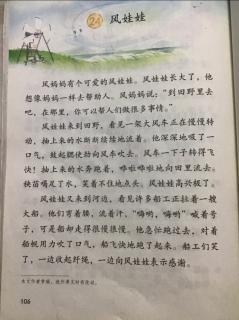 24 风娃娃
风妈妈有个可爱的风娃娃。风娃娃长大了，他
想像妈妈一样去帮助人。风妈妈说：“到田野里去
吧，在那里，你可以帮人们做很多事情。”
风娃娃来到田野，看见一架大风车正在慢慢转
动，抽上来的水断断续续地流着。他深深地吸了一
口气，鼓起腮使劲向风车吹去。风车一下子转得飞
快！抽上来的水奔跑着，哗啦哗啦地向田里流去。
秧苗喝足了水，笑着不住地点头。风娃娃高兴极了。
风娃娃又来到河边，看见许多船工正拉着一艘
大船。他们弯着腰，流着汗，“嗨哟，嗨哟”喊着号
子，可是船却走得很慢很慢。他急忙跑过去，对着
船帆用力吹了口气，船飞快地跑了起来。船工们笑
了，一边收起纤绳，一边向风娃娃表示感谢。
106